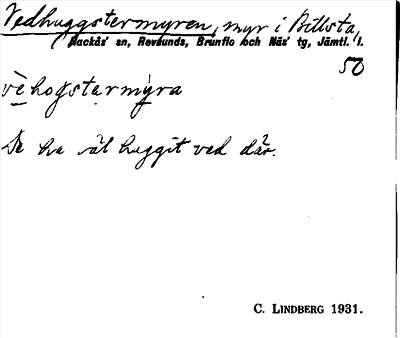 Vedhuggstermyren, myr i Billsta,
Hackås' sn, Revsunds, Brunflo och Näs' tg, Jämtl. l.
50
vèhogstarmýra
De ha väl huggit ved där.
C. LINDBERG 1931.